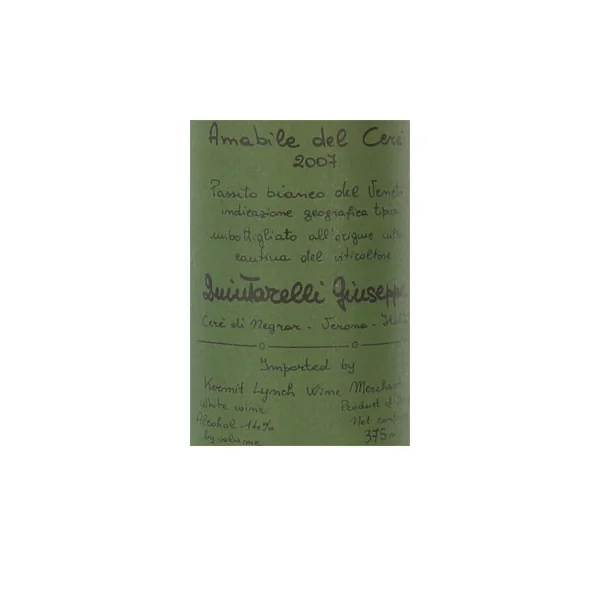 Amabile del Cerè
2007
Passito bianco del Veneto
indicazione geografica tipica
imbottigliato all'origine nella
cantina del viticoltore
Quintarelli Giuseppe
Cerè di Negrar - Verona - Italia
Imported by
Kermit Lynch Wine Merchan
white wine
Product of
Alcohol 14%
Net conten
by volume
375 m